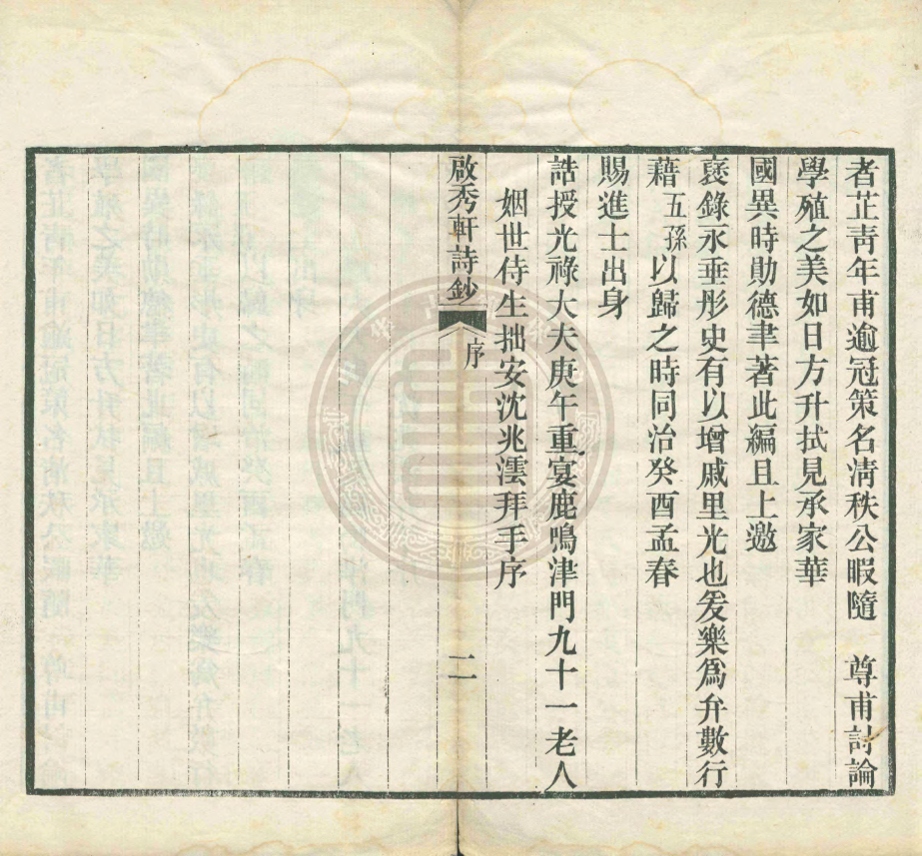 者芷青年甫逾冠策名清秩公暇隨　尊甫討論
學殖之美如日方升拭見承家華
國異時勛德聿著此編且上邀
襃錄永垂彤史有以增戚里光也爰樂爲弁數行
藉五孫以歸之時同治癸酉孟春
賜進士出身
誥授光祿大夫庚午重宴鹿鳴津門九十一老人
姻世侍生拙安沈兆澐拜手序
啟秀軒詩鈔　序　二